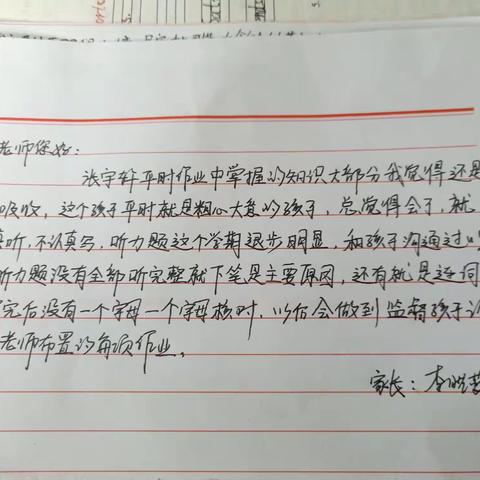 老师您好：
张宇轩平时作业中掌握的知识大部分我觉得还是
吸收，这个孩子平时就是粗心大意的孩子，总觉得会了，就
真听，不认真写，听力题这个学期退步明显，和孩子沟通过
听力题没有全部听完整就下笔是主要原因，还有就是连词
完后没有一个字母一个字母核对，以后会做到监督孩子认
老师布置的每项作业。
家长：李